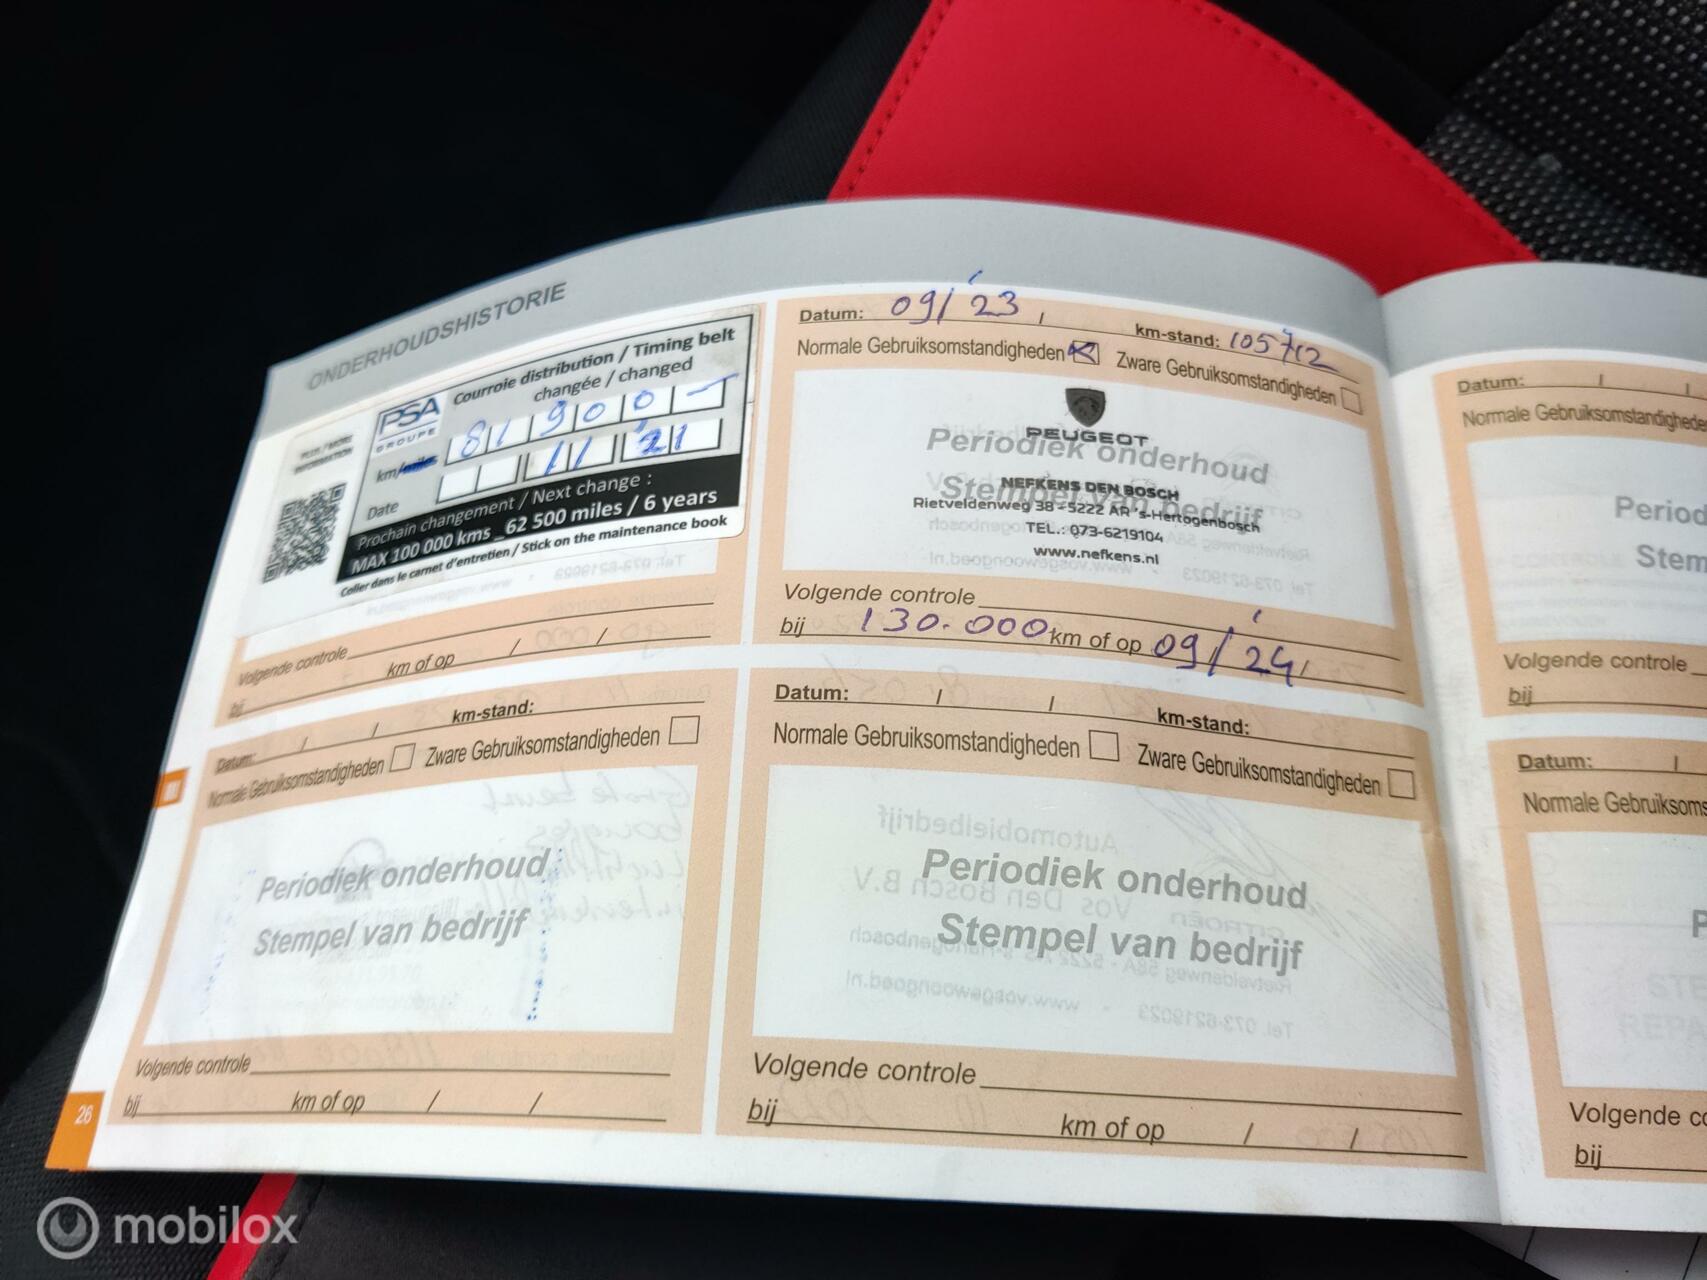 ONDERHOUDSHISTORIE
PLUS / MORE
INFORMATION
PSA
GROUPE
Courroie distribution / Timing belt
changée / changed
km/miles 81900-
Date 11 '21
Prochain changement / Next change :
MAX 100 000 kms _62 500 miles / 6 years
Coller dans le carnet d'entretien / Stick on the maintenance book
Volgende controle
bij km of op / /
Datum: 09/'23 / km-stand: 105712
Normale Gebruiksomstandigheden Zware Gebruiksomstandigheden
PEUGEOT
Periodiek onderhoud
NEFKENS DEN BOSCH
Stempel van bedrijf
Rietveldenweg 38 - 5222 AR 's-Hertogenbosch
TEL.: 073-6219104
www.nefkens.nl
Volgende controle
bij 130.000 km of op 09/'24/
Datum: / / km-stand:
Normale Gebruiksomstandigheden Zware Gebruiksomstandigheden
Periodiek onderhoud
Stempel van bedrijf
Volgende controle
bij km of op / /
Datum: / / km-stand:
Normale Gebruiksomstandigheden Zware Gebruiksomstandigheden
Periodiek onderhoud
Stempel van bedrijf
Volgende controle
bij km of op / /
26
Datum: / /
Normale Gebruiksomstandighede
Period
Stem
Volgende controle
bij
Datum: /
Normale Gebruiksoms
P
Volgende co
bij
mobilox